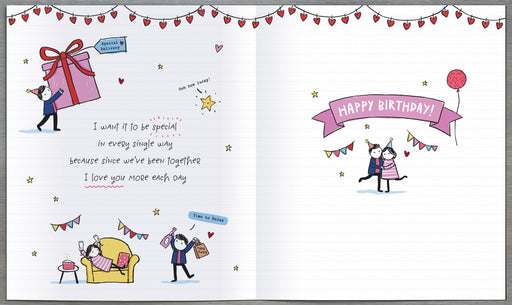 Special
Delivery
Ooh how lucky!
I want it to be special
in every single way
because since we've been together
I love you more each day
Time to Relax
HAPPY BIRTHDAY!